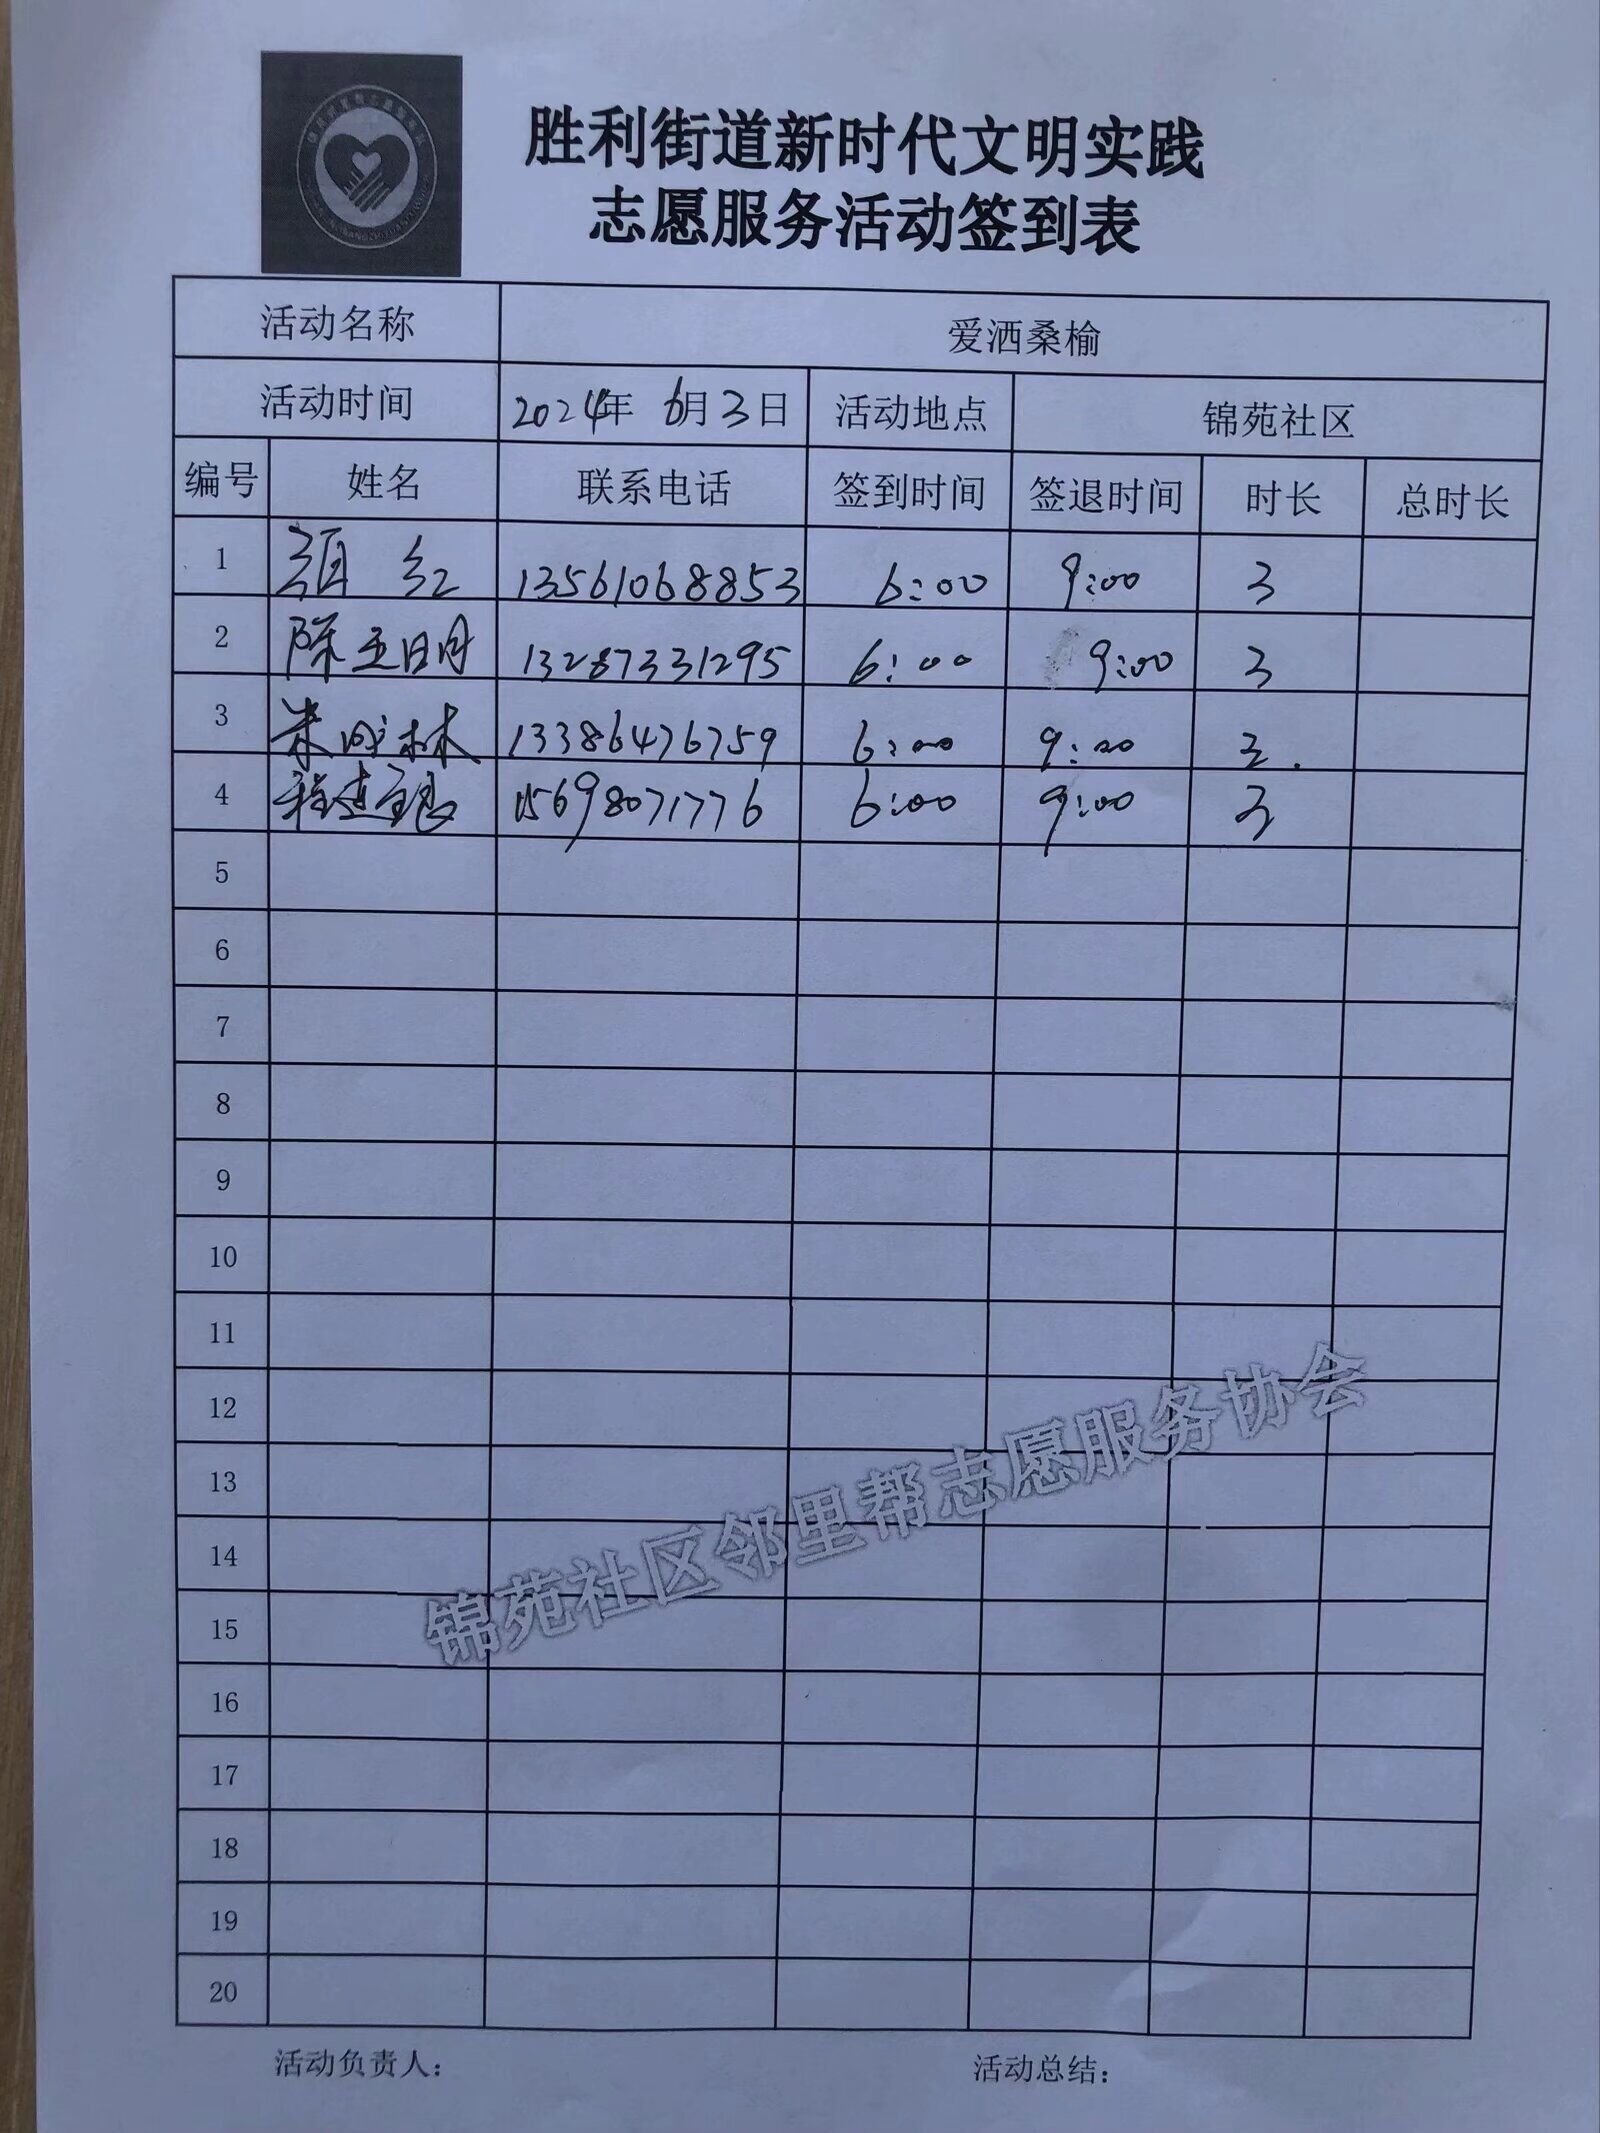 胜利街道新时代文明实践
志愿服务活动签到表
活动名称 爱洒桑榆
活动时间 2024年 6月3日 活动地点 锦苑社区
编号 姓名 联系电话 签到时间 签退时间 时长 总时长
1 红 13561068853 6:00 9:00 3
2 陈玉明 13287331295 6:00 9:00 3
3 林 13386476759 6:00 9:00 3.
4 程建 15698071776 6:00 9:00 3
5
6
7
8
9
10
11
12
13
14
15
16
17
18
19
20
锦苑社区邻里帮志愿服务协会
活动负责人： 活动总结：